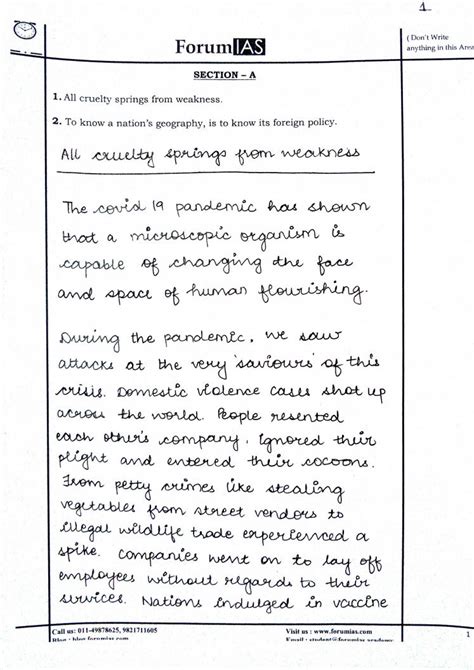 1
(Don't Write
anything in this Area
Forum IAS
SECTION – A
1. All cruelty springs from weakness.
2. To know a nation's geography, is to know its foreign policy.
All cruelty springs from weakness
The covid 19 pandemic has shown
that a microscopic organism is
capable of changing the face
and space of human flourishing.
During the pandemic, we saw
attacks at the very 'saviours' of this
crisis. Domestic violence cases shot up
across the world. People resented
each other's company, ignored their
plight and entered their cocoons.
From petty crimes like stealing
vegetables from street vendors to
illegal wildlife trade experienced a
spike. Companies went on to lay off
employees without regards to their
services. Nations indulged in vaccine
Call us: 011-49878625, 9821711605
Visit us : www.forumias.com
1
Blog : blog.forumias.com
Email : student@forumias.academy